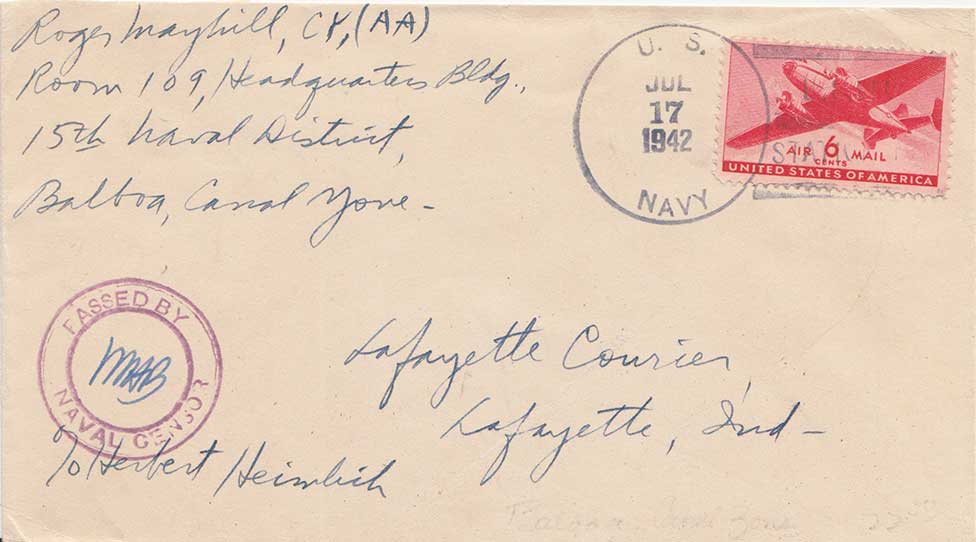 Roger Mayhill, CY, (AA)
Room 109, Headquarters Bldg.,
15th Naval District,
Balboa, Canal Zone -
U. S.
JUL
17
1942
NAVY
AIR 6 MAIL
CENTS
UNITED STATES OF AMERICA
PASSED BY
NAVAL CENSOR
Lafayette Courier,
Lafayette, Ind -
℅ Herbert Heimlich
Balboa Canal Zone